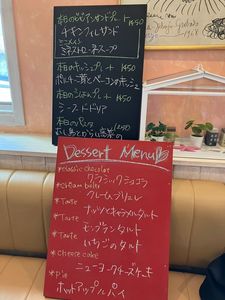 本日のピタサンドプレート 1450
チキンフィレサンド
ミネストローネスープ
本日のキッシュプレート 1450
ポルチーニ茸とベーコンのキッシュ
本日のごはんプレート 1450
シーフードドリア
本日のパスタ
Dessert Menu
*classic chocolat
クラッシックショコラ
クレームブリュレ
*Tarte
ナッツとキャラメルタルト
*Tarte
モンブランタルト
*Tarte
いちごのタルト
*cheese cake
ニューヨークチーズケーキ
*pie
ホットアップルパイ